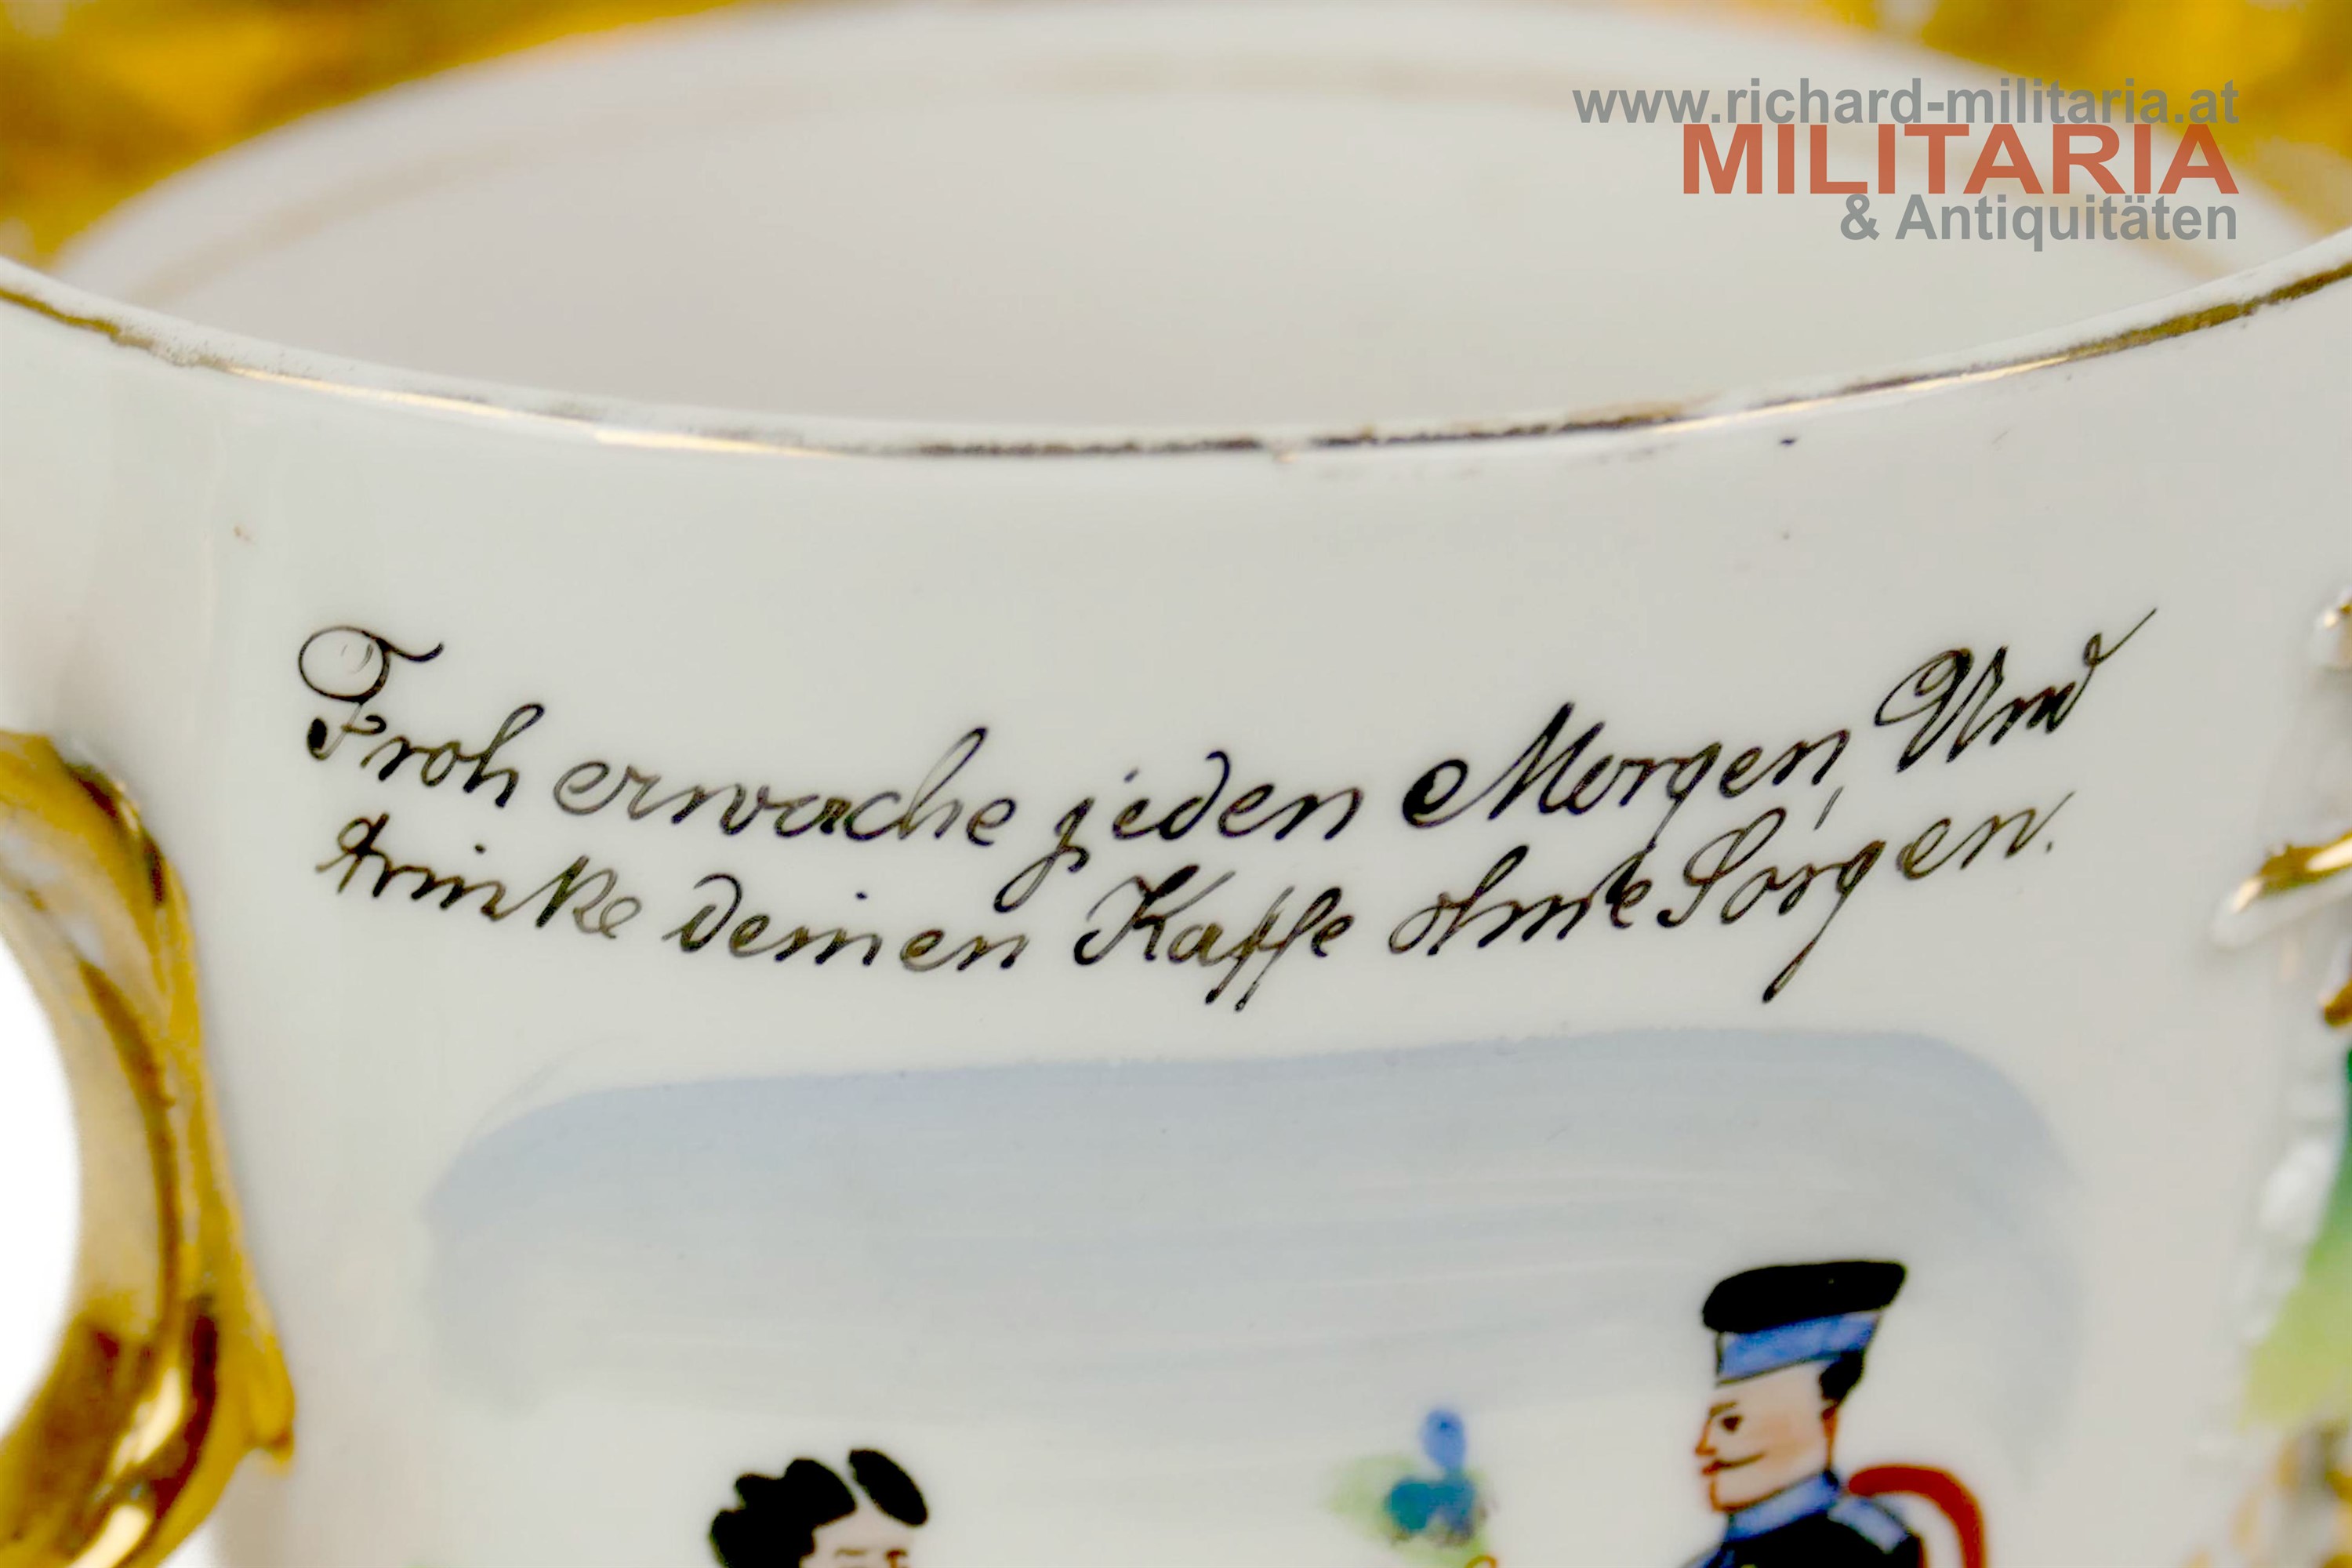 www.richard-militaria.at
MILITARIA
& Antiquitäten
Froh erwache jeden Morgen, Und
trinke deinen Kaffe ohne Sorgen.